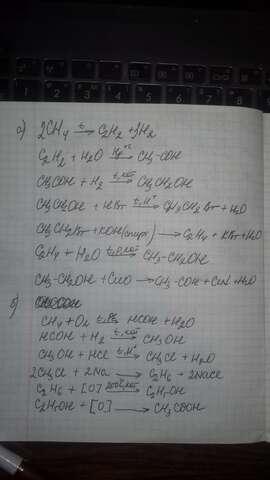 а) 2CH4 →t C2H2 + 3H2
C2H2 + H2O →Hg+2 CH3-COH
CH3COH + H2 →t, кат CH3CH2OH
CH3CH2OH + HBr →t, H+ CH3CH2Br + H2O
CH3CH2Br + KOH(спирт) → C2H4 + KBr + H2O
C2H4 + H2O →t, p, кат CH3-CH2OH
CH3-CH2OH + CuO → CH3-COH + Cu + H2O
б)
CH4 + O2 →t, кат HCOH + H2O
HCOH + H2 →t, кат CH3OH
CH3OH + HCl →t, H+ CH3Cl + H2O
2CH3Cl + 2Na → C2H6 + 2NaCl
C2H6 + [O] →200°, кат C2H5OH
C2H5OH + [O] → CH3COOH